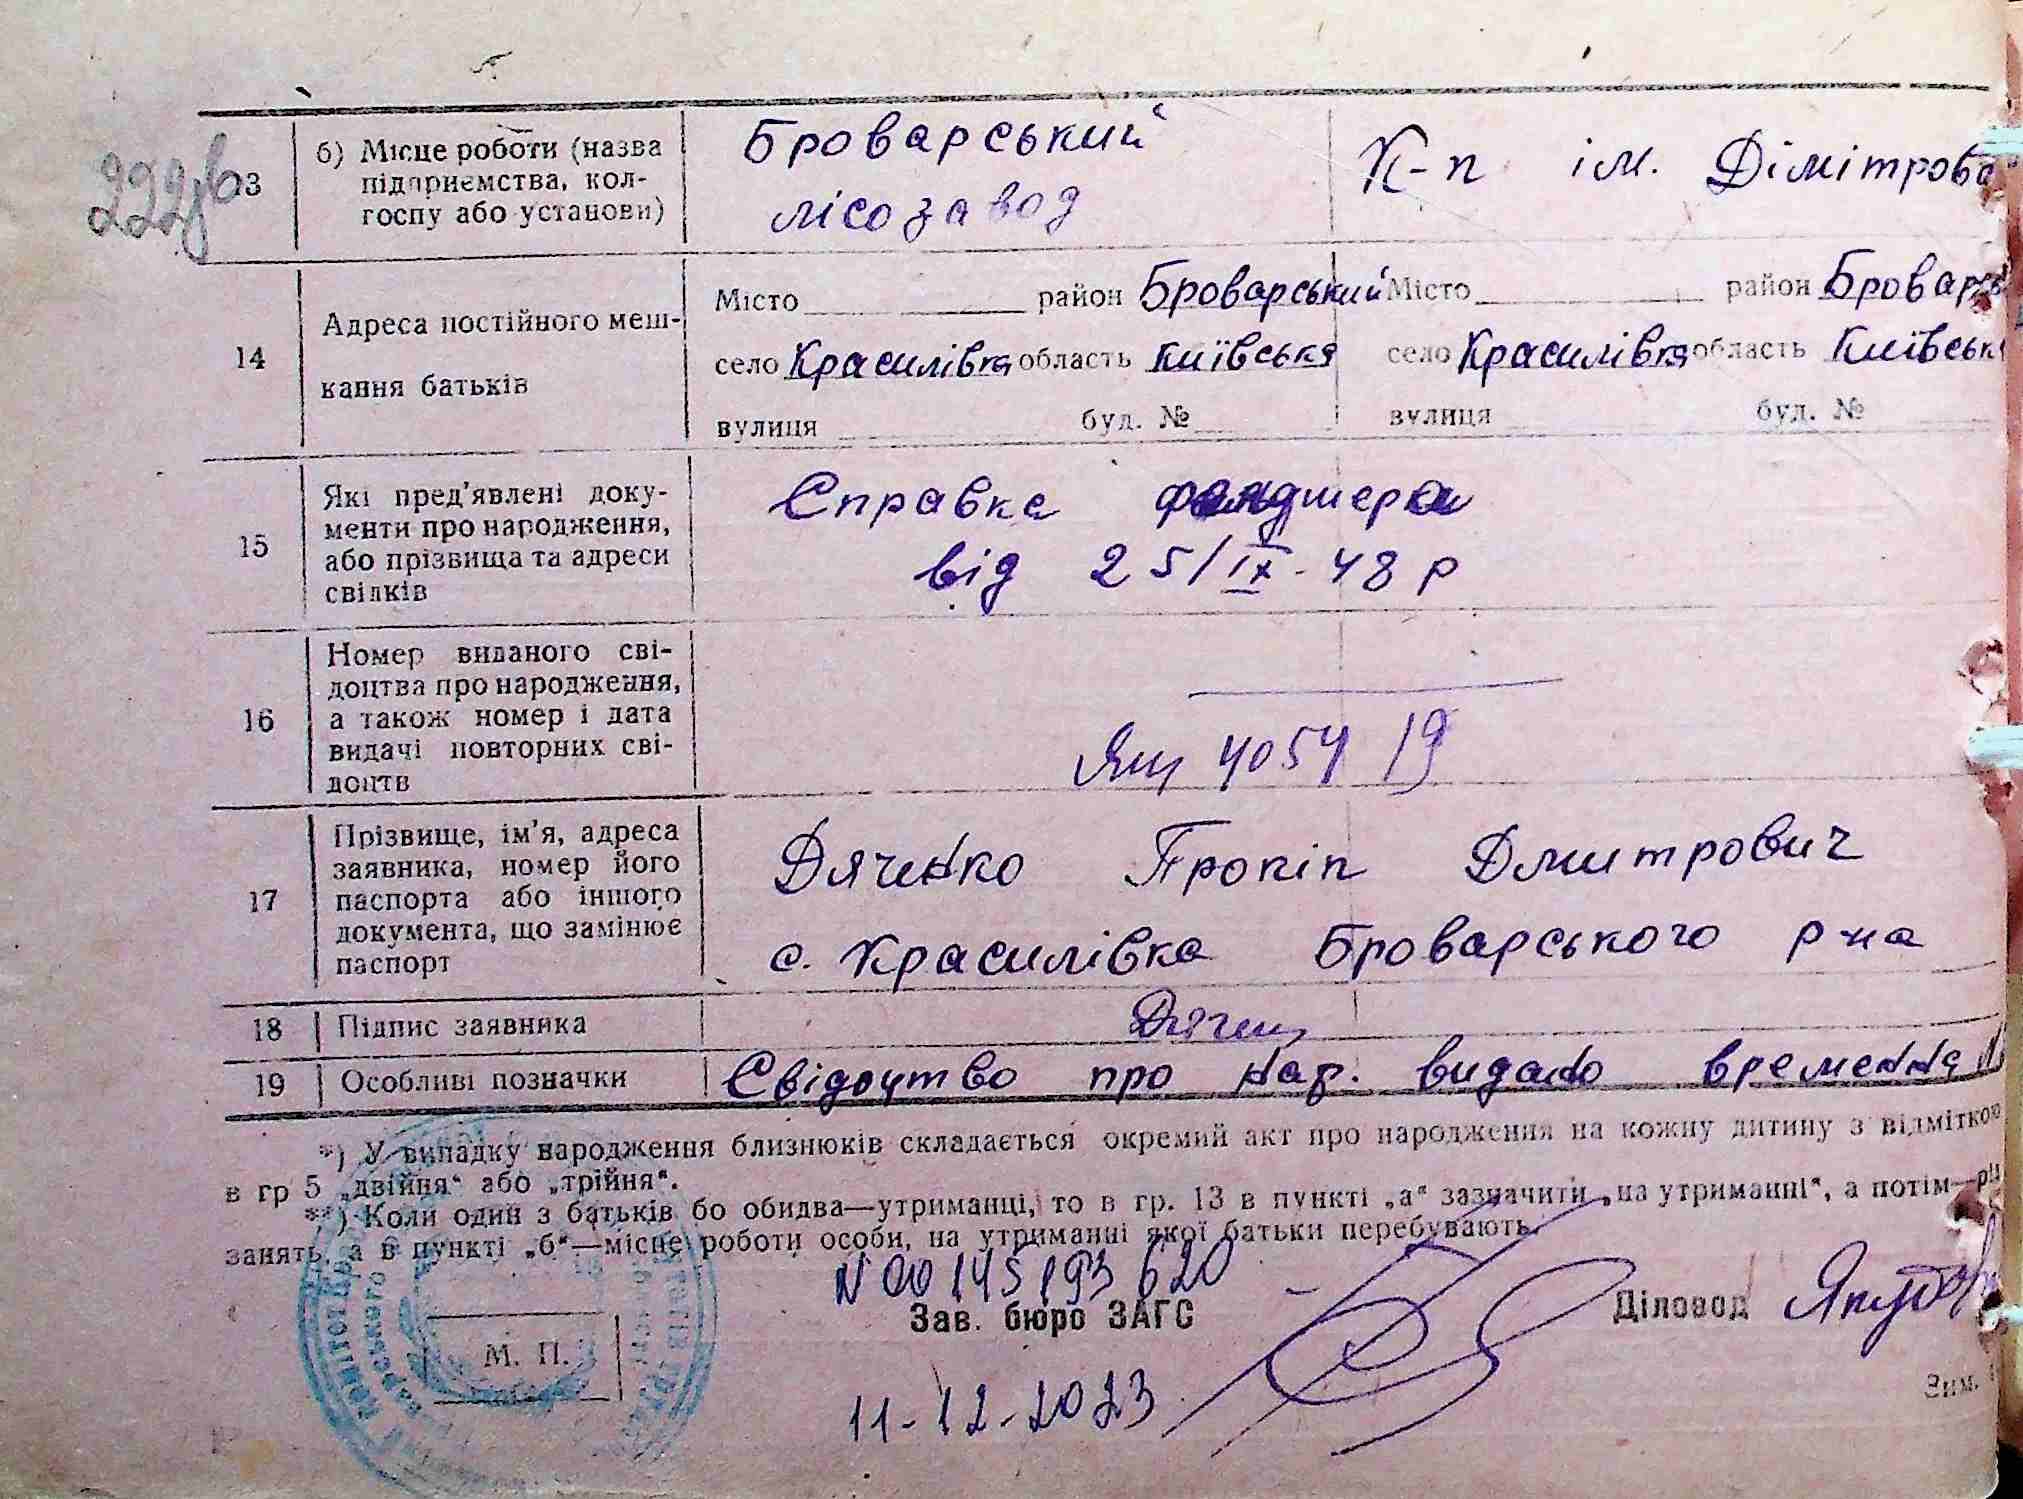 222зв
13 б) Місце роботи (назва підприємства, колгоспу або установи)
Броварський лісозавод
К-п ім. Дімітрова
14 Адреса постійного мешкання батьків
Місто район Броварський
село Красилівка область Київська
вулиця буд. №
Місто район Броварсь
село Красилівка область Київськ
вулиця буд. №
15 Які пред'явлені документи про народження, або прізвища та адреси свідків
Справка фельдшера
від 25/IX-48 р
16 Номер виданого свідоцтва про народження, а також номер і дата видачі повторних свідоцтв
4054 19
17 Прізвище, ім'я, адреса заявника, номер його паспорта або іншого документа, що замінює паспорт
Дяченко Прокіп Дмитрович
с. Красилівка Броварського р-на
18 Підпис заявника
19 Особливі позначки
Свідоцтво про нар. видано временна
*) У випадку народження близнюків складається окремий акт про народження на кожну дитину з відміткою
в гр 5 „двійня“ або „трійня“.
**) Коли один з батьків або обидва—утриманці, то в гр. 13 в пункті „а“ зазначити „на утриманні“, а потім—рід
занять, а в пункті „б“—місце роботи особи, на утриманні якої батьки перебувають.
N 00145193620
Зав. бюро ЗАГС
Діловод
М. П.
11-12-2023
Зим.